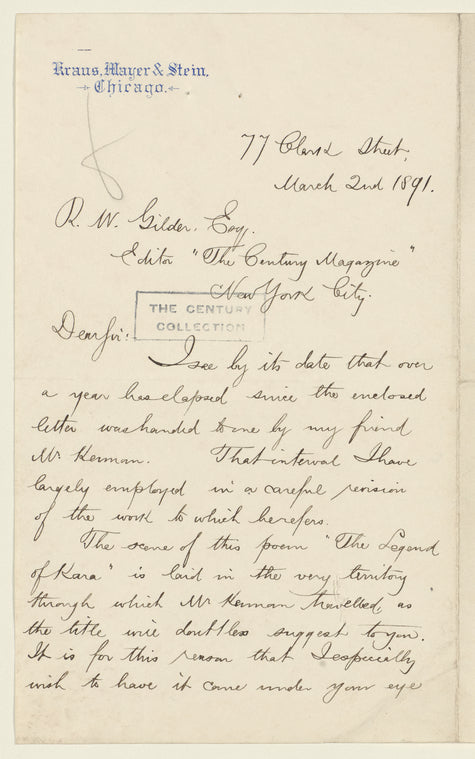 Kraus, Mayer & Stein,
Chicago.
77 Clark Street,
March 2nd 1891.
R. W. Gilder, Esq.
Editor "The Century Magazine"
New York City.
THE CENTURY
COLLECTION
Dear Sir:
I see by its date that over
a year has elapsed since the enclosed
letter was handed to me by my friend
Mr. Kennan. That interval I have
largely employed in a careful revision
of the work to which he refers.
The scene of this poem "The Legend
of Kara" is laid in the very territory
through which Mr Kennan travelled, as
the title will doubtless suggest to you.
It is for this reason that I especially
wish to have it come under your eye